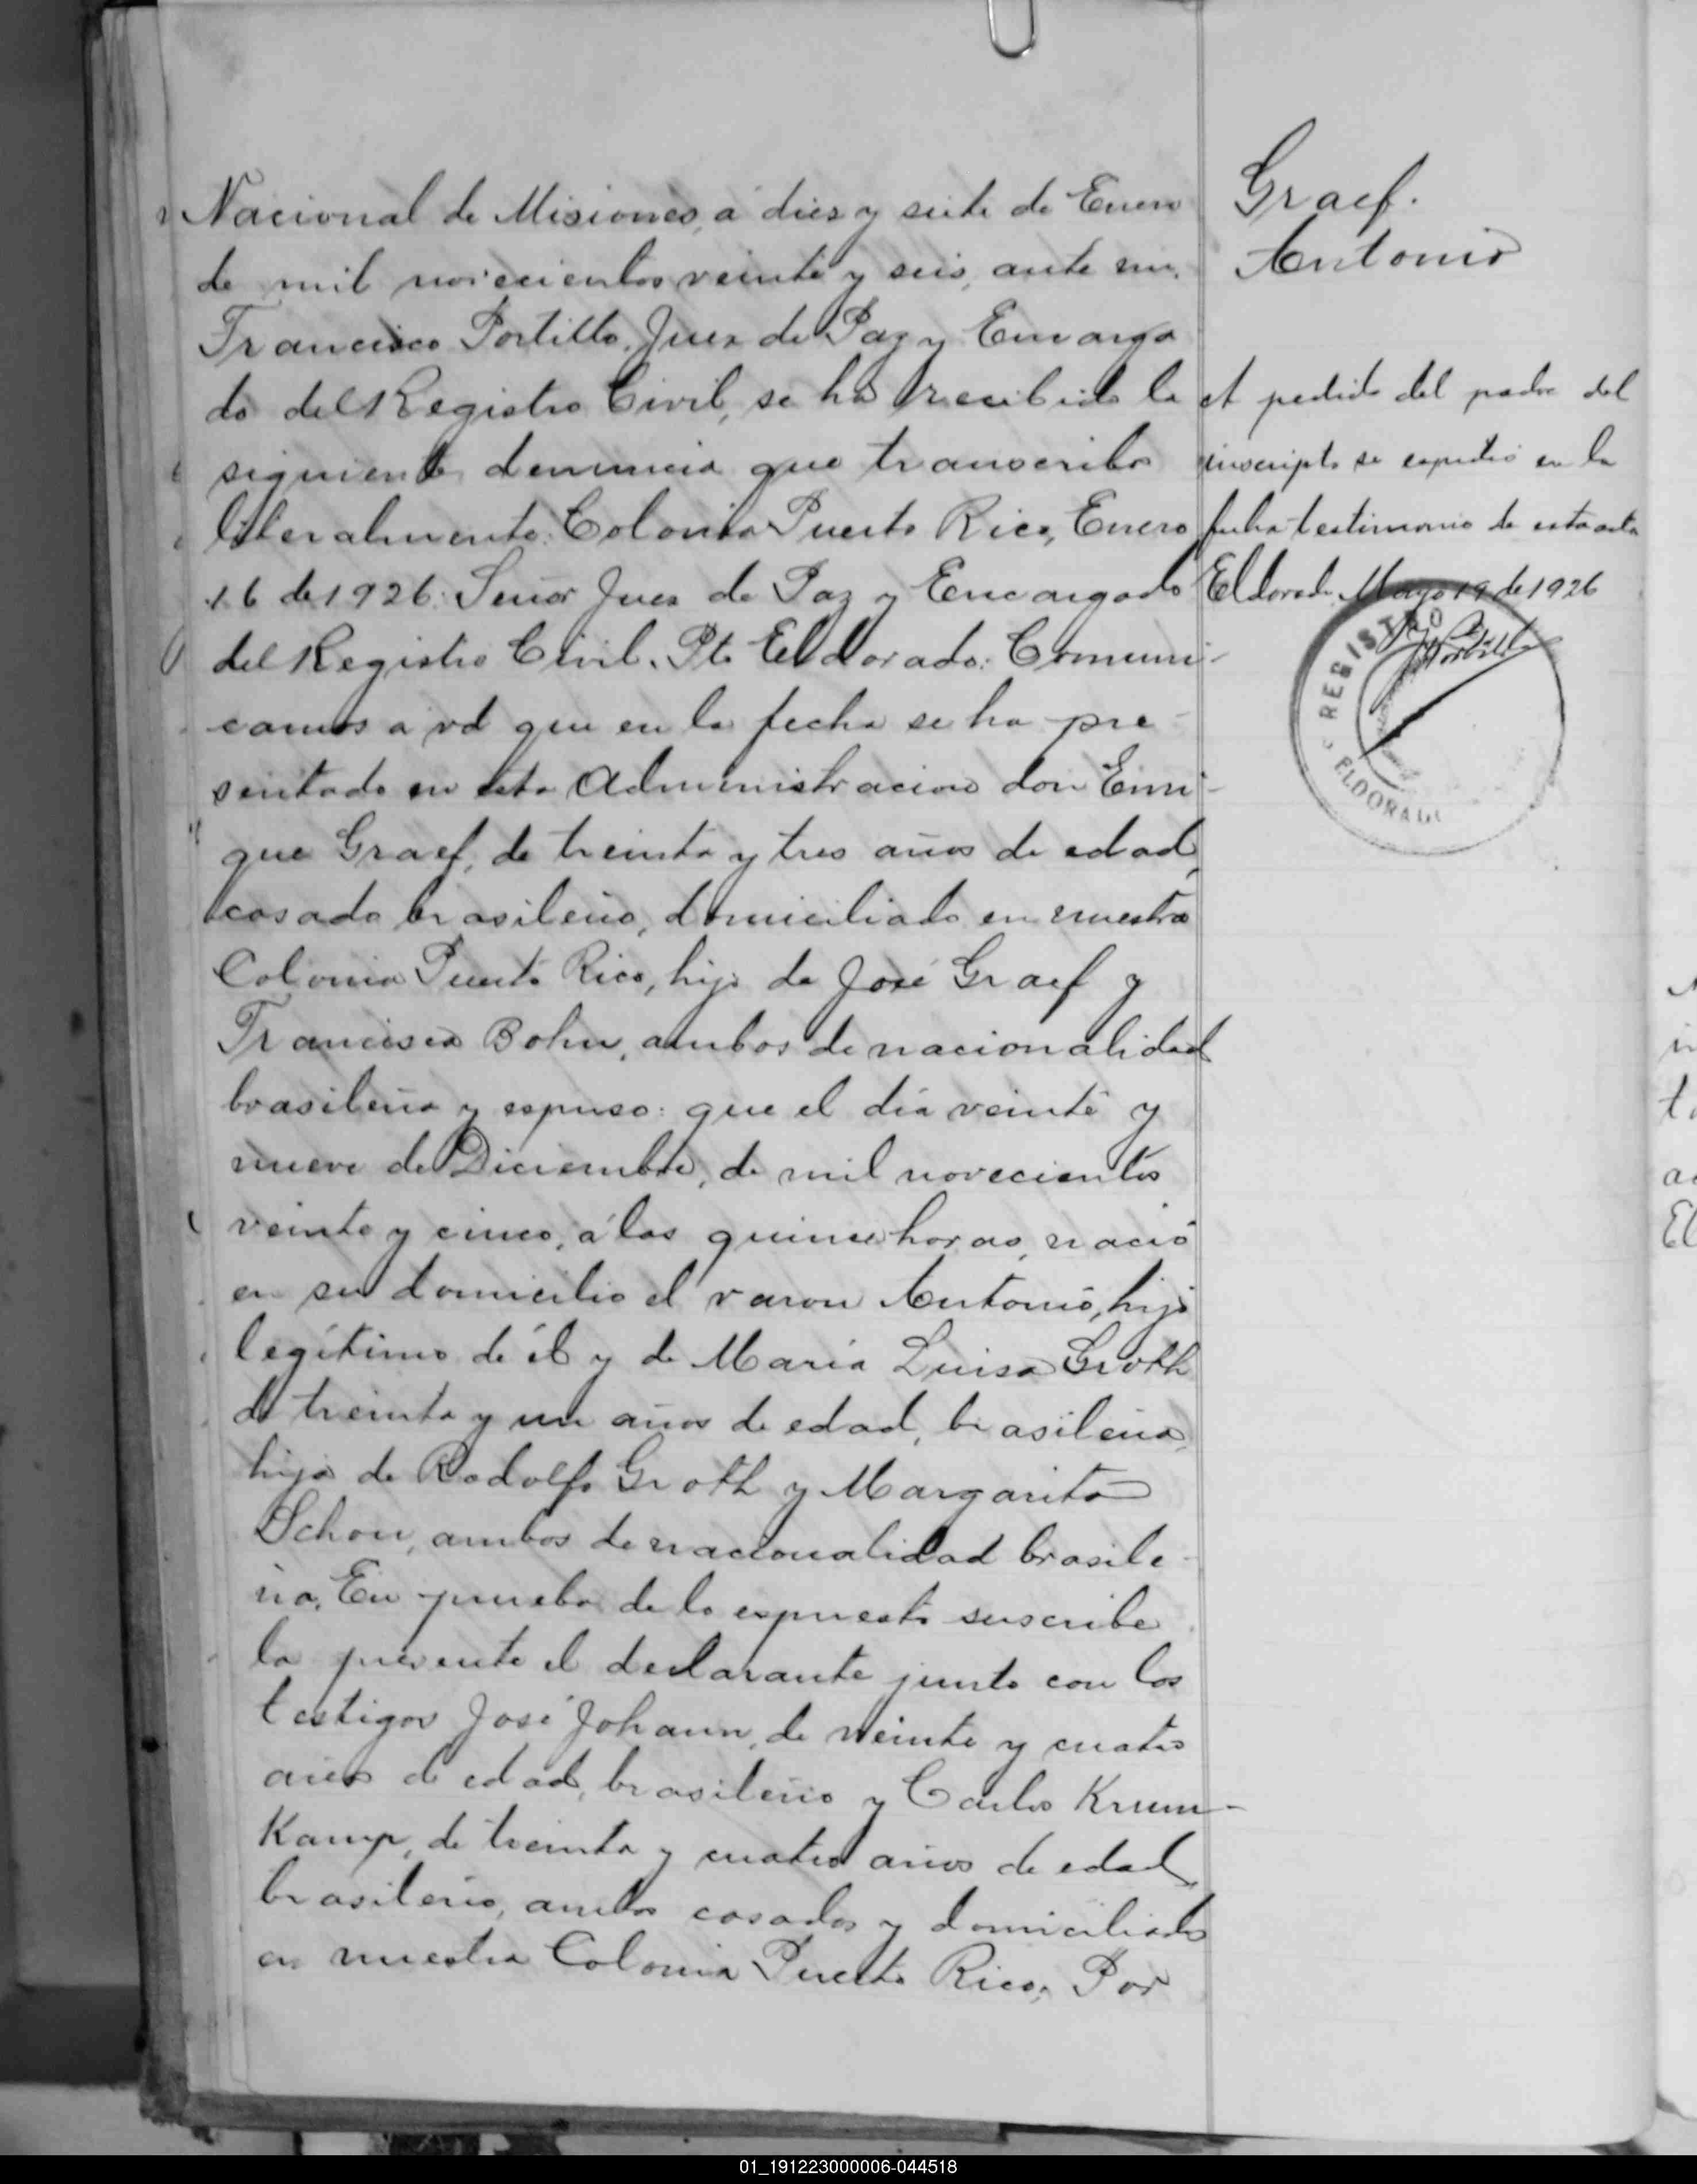 Nacional de Misiones, á diez y siete de Enero
de mil novecientos veinte y seis, ante mi,
Francisco Portillo, Juez de Paz y Encarga
do del Registro Civil, se ha recibido la
siguiente denuncia que transcribo
literalmente: Colonia Puerto Rico, Enero
16 de 1926. Señor Juez de Paz y Encargado
del Registro Civil. Pto Eldorado: Comuni-
camos a vd que en la fecha se ha pre-
sentado en esta Administracion don Enri-
que Graef, de treinta y tres años de edad,
casado brasileño, domiciliado en nuestra
Colonia Puerto Rico, hijo de José Graef y
Francisca Bohn, ambos de nacionalidad
brasileña y espuso: que el día veinte y
nueve de Diciembre, de mil novecientos
veinte y cinco, á las quince horas, nació
en su domicilio el varon Antonio, hijo
legítimo de él y de María Luisa Groth
de treinta y un años de edad, brasileña,
hija de Rodolfo Groth y Margarita
Schon, ambos de nacionalidad brasile-
ña. En prueba de lo expuesto suscribe
la presente el declarante junto con los
testigos José Johann, de veinte y cuatro
años de edad, brasileño y Carlos Krum-
Kamp, de treinta y cuatro años de edad,
brasileño, ambos casados y domiciliados
en nuestra Colonia Puerto Rico. Por
Graef.
Antonio
A pedido del padre del
inscripto se expidió en la
fecha testimonio de esta acta
Eldorado Mayo 19 de 1926
REGISTRO
ELDORADO
01_191223000006-044518